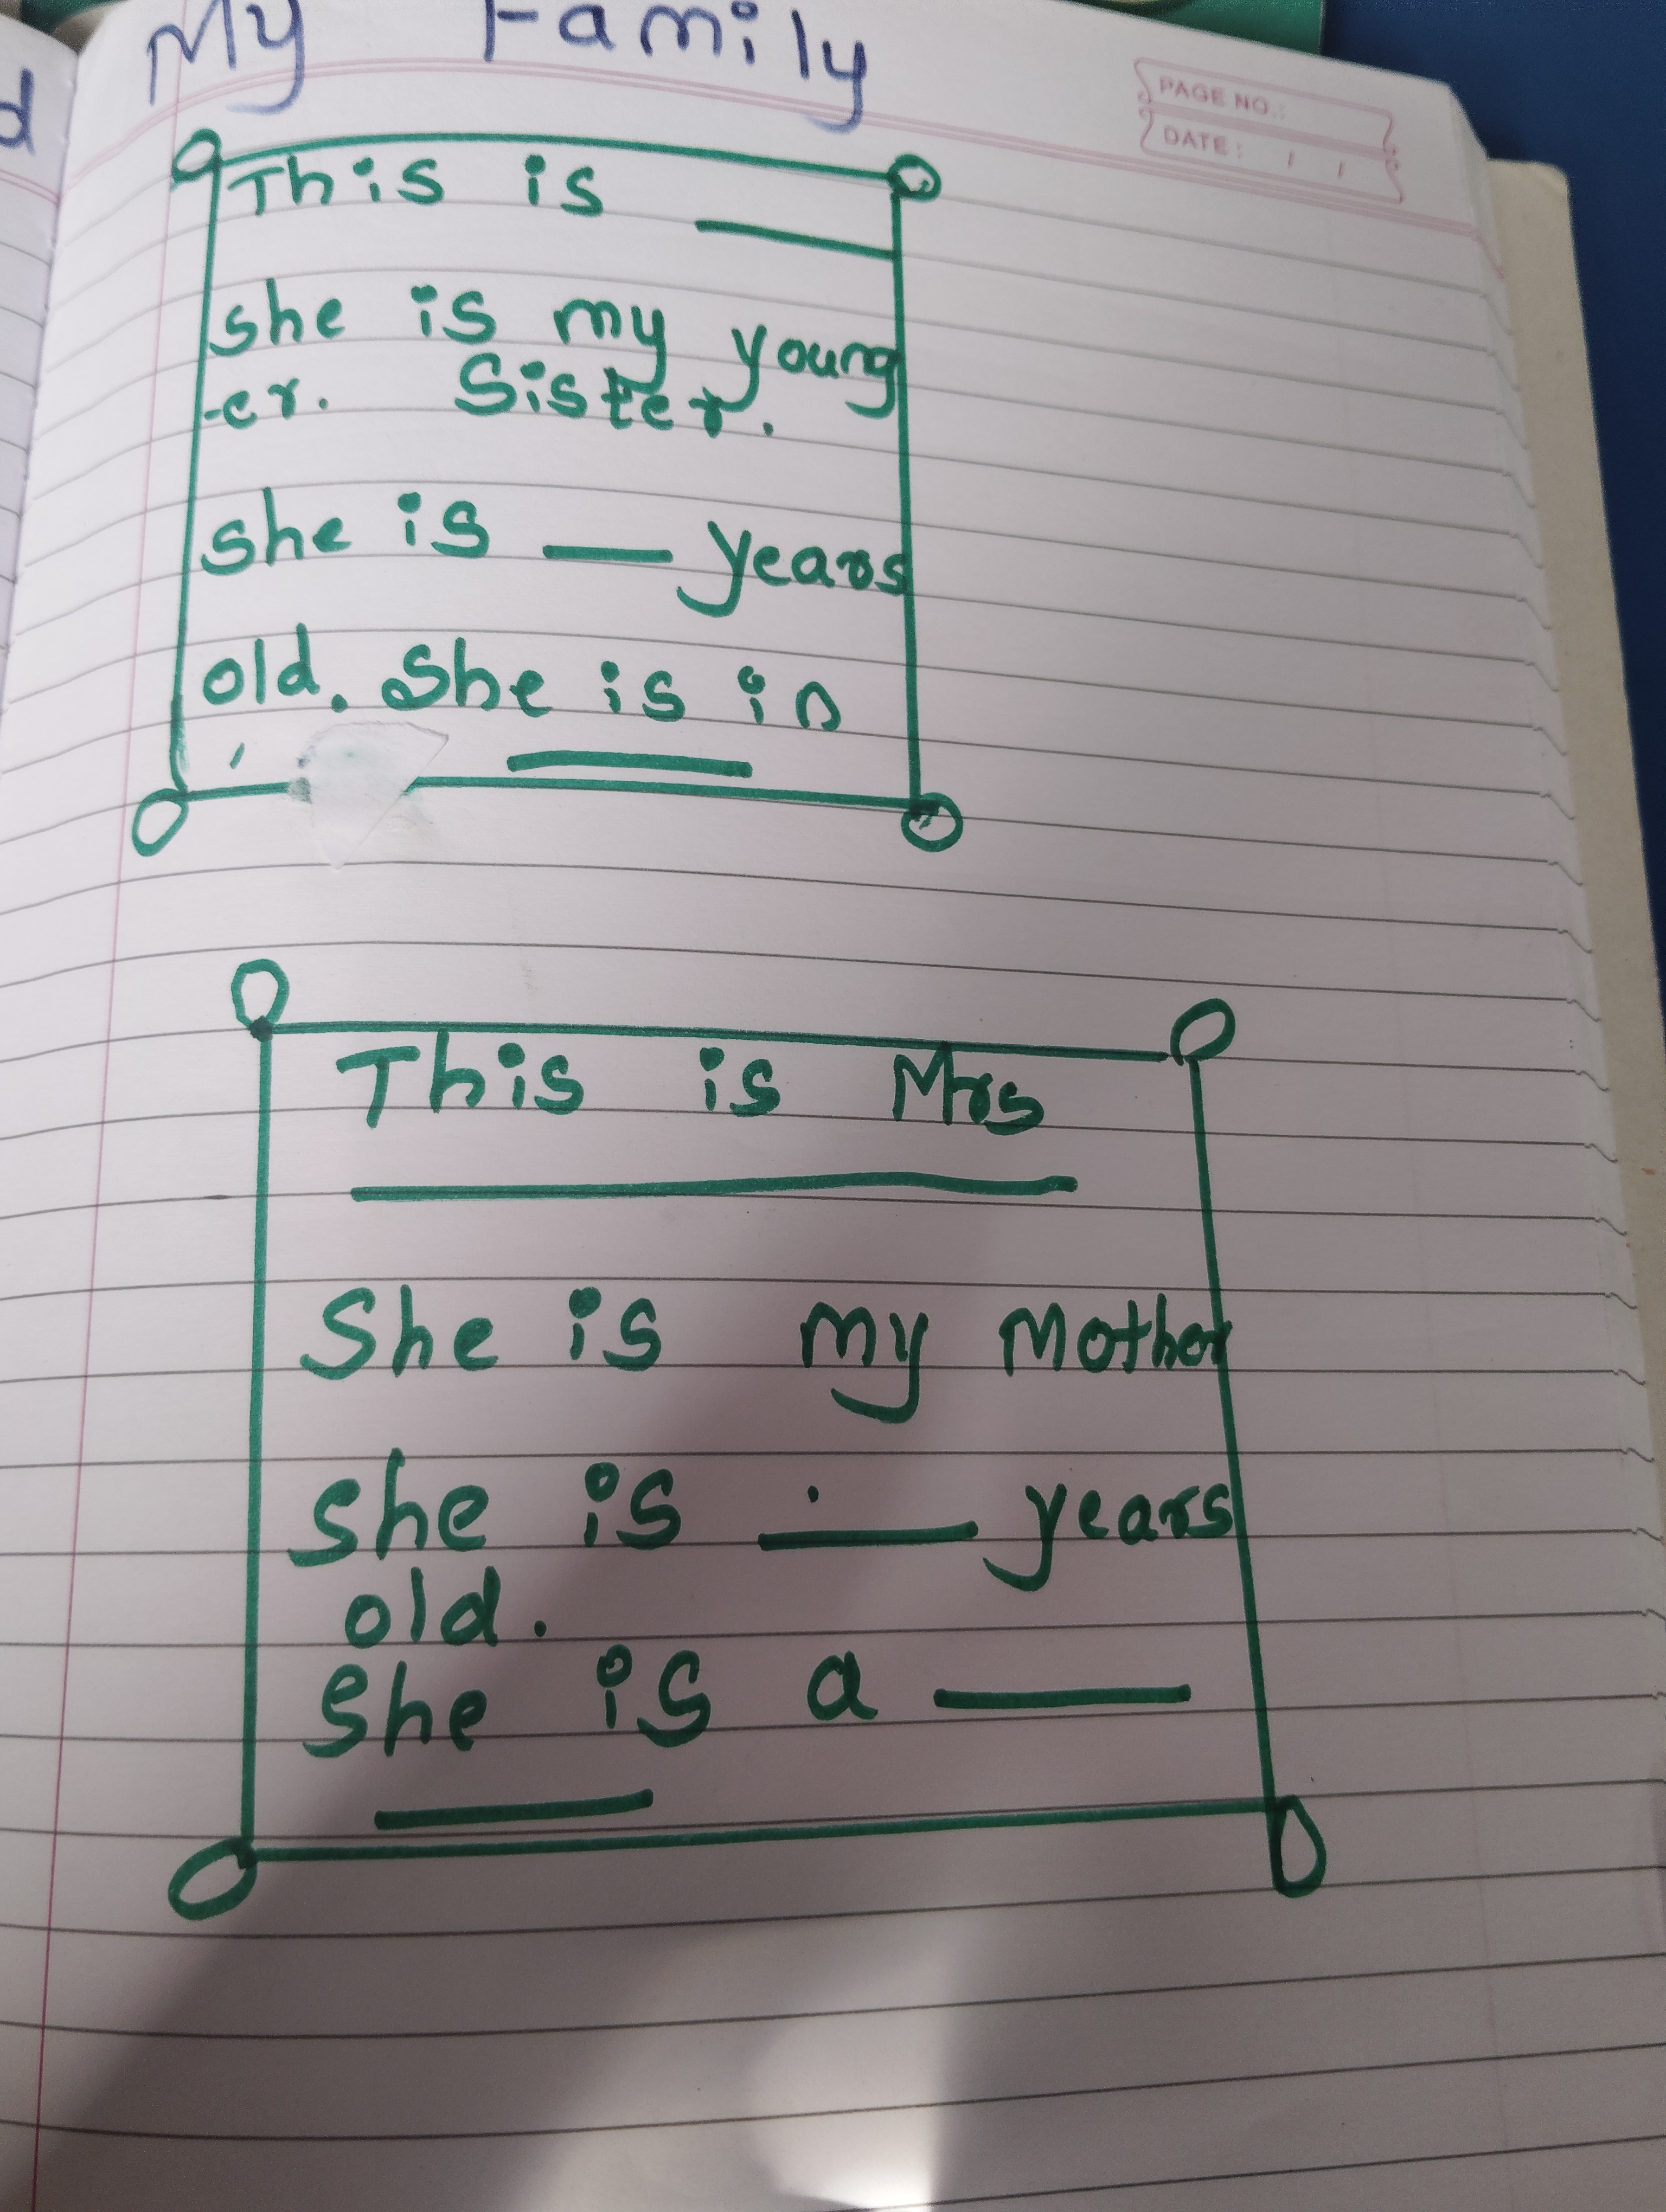 d
My Family
PAGE NO.:
DATE: / /
This is ___
she is my young
-er. Sister.
she is __ years
old. She is in
___
This is Mrs
___
She is my Mother
she is __ years
old.
She is a ___
___